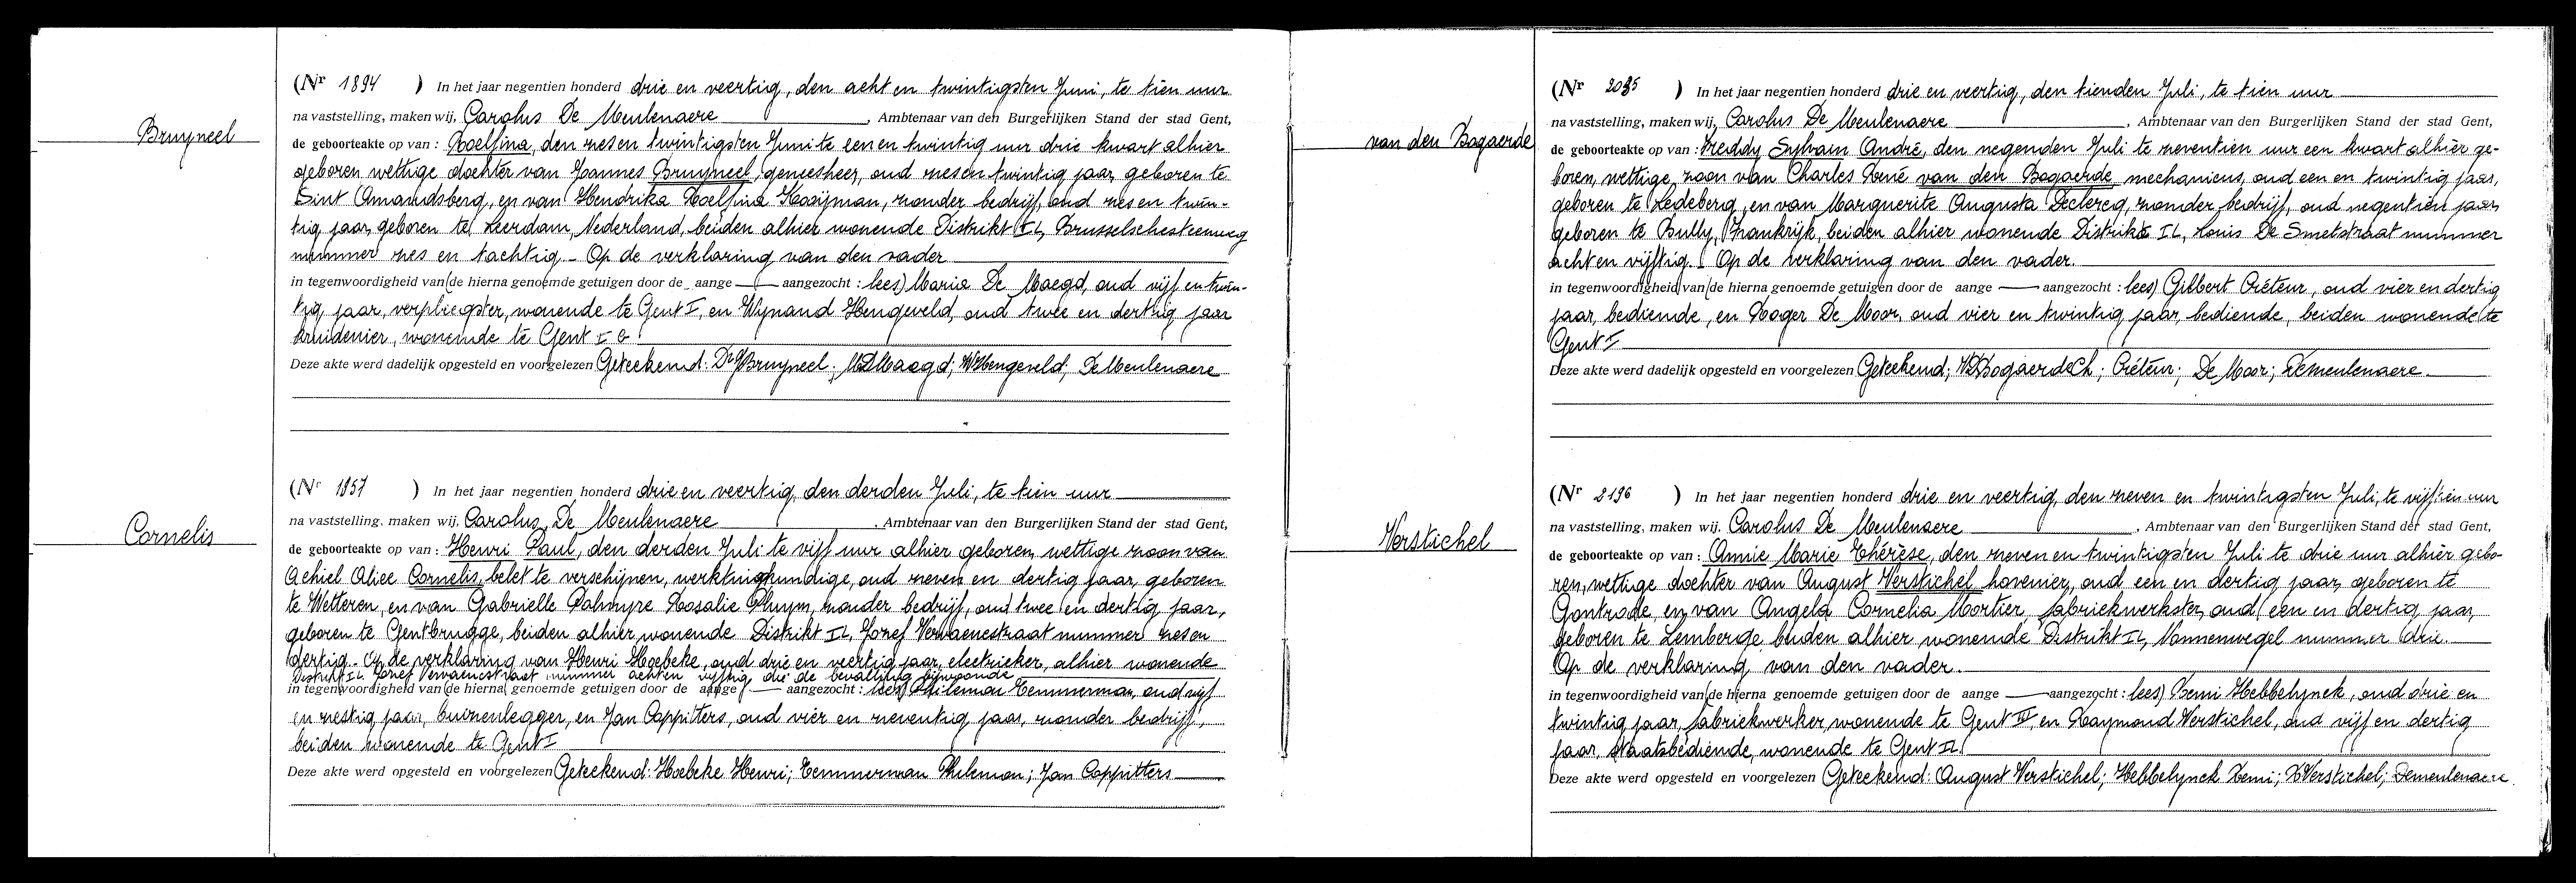 Bruyneel
(Nr 1894 ) In het jaar negentien honderd drie en veertig, den acht en twintigsten Juni, te tien uur
na vaststelling, maken wij, Carolus De Meulenaere, Ambtenaar van den Burgerlijken Stand der stad Gent,
de geboorteakte op van : Roelfina, den zes en twintigsten Juni te een en twintig uur drie kwart alhier
geboren wettige dochter van Joannes Bruyneel, geneesheer, oud zes en twintig jaar, geboren te
Sint Amandsberg, en van Hendrika Roelfina Kooijman, zonder bedrijf, oud zes en twin-
tig jaar, geboren te Leerdam, Nederland, beiden alhier wonende Distrikt IL, Brusselschesteenweg
nummer zes en tachtig. - Op de verklaring van den vader
in tegenwoordigheid van (de hierna genoemde getuigen door de aange — aangezocht : lees) Maria De Maegd, oud vijf en twin-
tig jaar, verpleegster, wonende te Gent I, en Wynand Hengeveld, oud twee en dertig jaar
kruidenier, wonende te Gent I G
Deze akte werd dadelijk opgesteld en voorgelezen Geteekend: Dr Bruyneel; MDMaegd; WHengeveld; De Meulenaere
Cornelis
(Nr 1957 ) In het jaar negentien honderd drie en veertig, den derden Juli, te tien uur
na vaststelling, maken wij, Carolus De Meulenaere, Ambtenaar van den Burgerlijken Stand der stad Gent,
de geboorteakte op van : Henri Paul, den derden Juli te vijf uur alhier geboren, wettige zoon van
Achiel Alice Cornelis, belet te verschijnen, werktuigkundige, oud zeven en dertig jaar, geboren
te Wetteren, en van Gabrielle Palmyre Rosalie Pluym, zonder bedrijf, oud twee en dertig jaar,
geboren te Gentbrugge, beiden alhier wonende Distrikt IL, Jozef Vervaenestraat nummer zes en
dertig. - Op de verklaring van Henri Hoebeke, oud drie en veertig jaar, electrieker, alhier wonende
Distrikt IL Jozef Vervaenestraat nummer acht en vijftig die de bevalling bijwoonde
in tegenwoordigheid van (de hierna genoemde getuigen door de aange — aangezocht : lees) Philemon Temmerman, oud vijf
en zestig jaar, buizenlegger, en Jan Cappitters, oud vier en zeventig jaar, zonder bedrijf,
beiden wonende te Gent I
Deze akte werd opgesteld en voorgelezen Geteekend: Hoebeke Henri; Temmerman Philemon; Jan Cappitters
van den Bogaerde
(Nr 2035 ) In het jaar negentien honderd drie en veertig, den tienden Juli, te tien uur
na vaststelling, maken wij, Carolus De Meulenaere, Ambtenaar van den Burgerlijken Stand der stad Gent,
de geboorteakte op van : Freddy Sylvain André, den negenden Juli te zeventien uur een kwart alhier ge-
boren, wettige zoon van Charles René van den Bogaerde, mechanicus, oud een en twintig jaar,
geboren te Ledeberg, en van Marguerite Augusta Declercq, zonder bedrijf, oud negentien jaar,
geboren te Bully, Frankrijk, beiden alhier wonende Distrikt IL, Louis De Smetstraat nummer
acht en vijftig. Op de verklaring van den vader.
in tegenwoordigheid van (de hierna genoemde getuigen door de aange — aangezocht : lees) Gilbert Créteur, oud vier en dertig
jaar, bediende, en Roger De Moor, oud vier en twintig jaar, bediende, beiden wonende te
Gent I
Deze akte werd dadelijk opgesteld en voorgelezen Geteekend; VDBogaerdeCh; Créteur; De Moor; Demeulenaere.
Verstichel
(Nr 2196 ) In het jaar negentien honderd drie en veertig, den zeven en twintigsten Juli, te vijftien uur
na vaststelling, maken wij, Carolus De Meulenaere, Ambtenaar van den Burgerlijken Stand der stad Gent,
de geboorteakte op van : Annie Marie Thérèse, den zeven en twintigsten Juli te drie uur alhier gebo-
ren, wettige dochter van August Verstichel hovenier, oud een en dertig jaar, geboren te
Gontrode, en van Angela Cornelia Mortier, fabriekwerkster, oud een en dertig jaar,
geboren te Lemberge beiden alhier wonende Distrikt IL, Nonnenwegel nummer drie.
Op de verklaring van den vader.
in tegenwoordigheid van (de hierna genoemde getuigen door de aange — aangezocht : lees) Remi Hebbelynck, oud drie en
twintig jaar, fabriekwerker, wonende te Gent IV, en Raymond Verstichel, oud vijf en dertig
jaar, staatsbediende, wonende te Gent IL
Deze akte werd opgesteld en voorgelezen Geteekend: August Verstichel; Hebbelynck Remi; RVerstichel; Demeulenaere